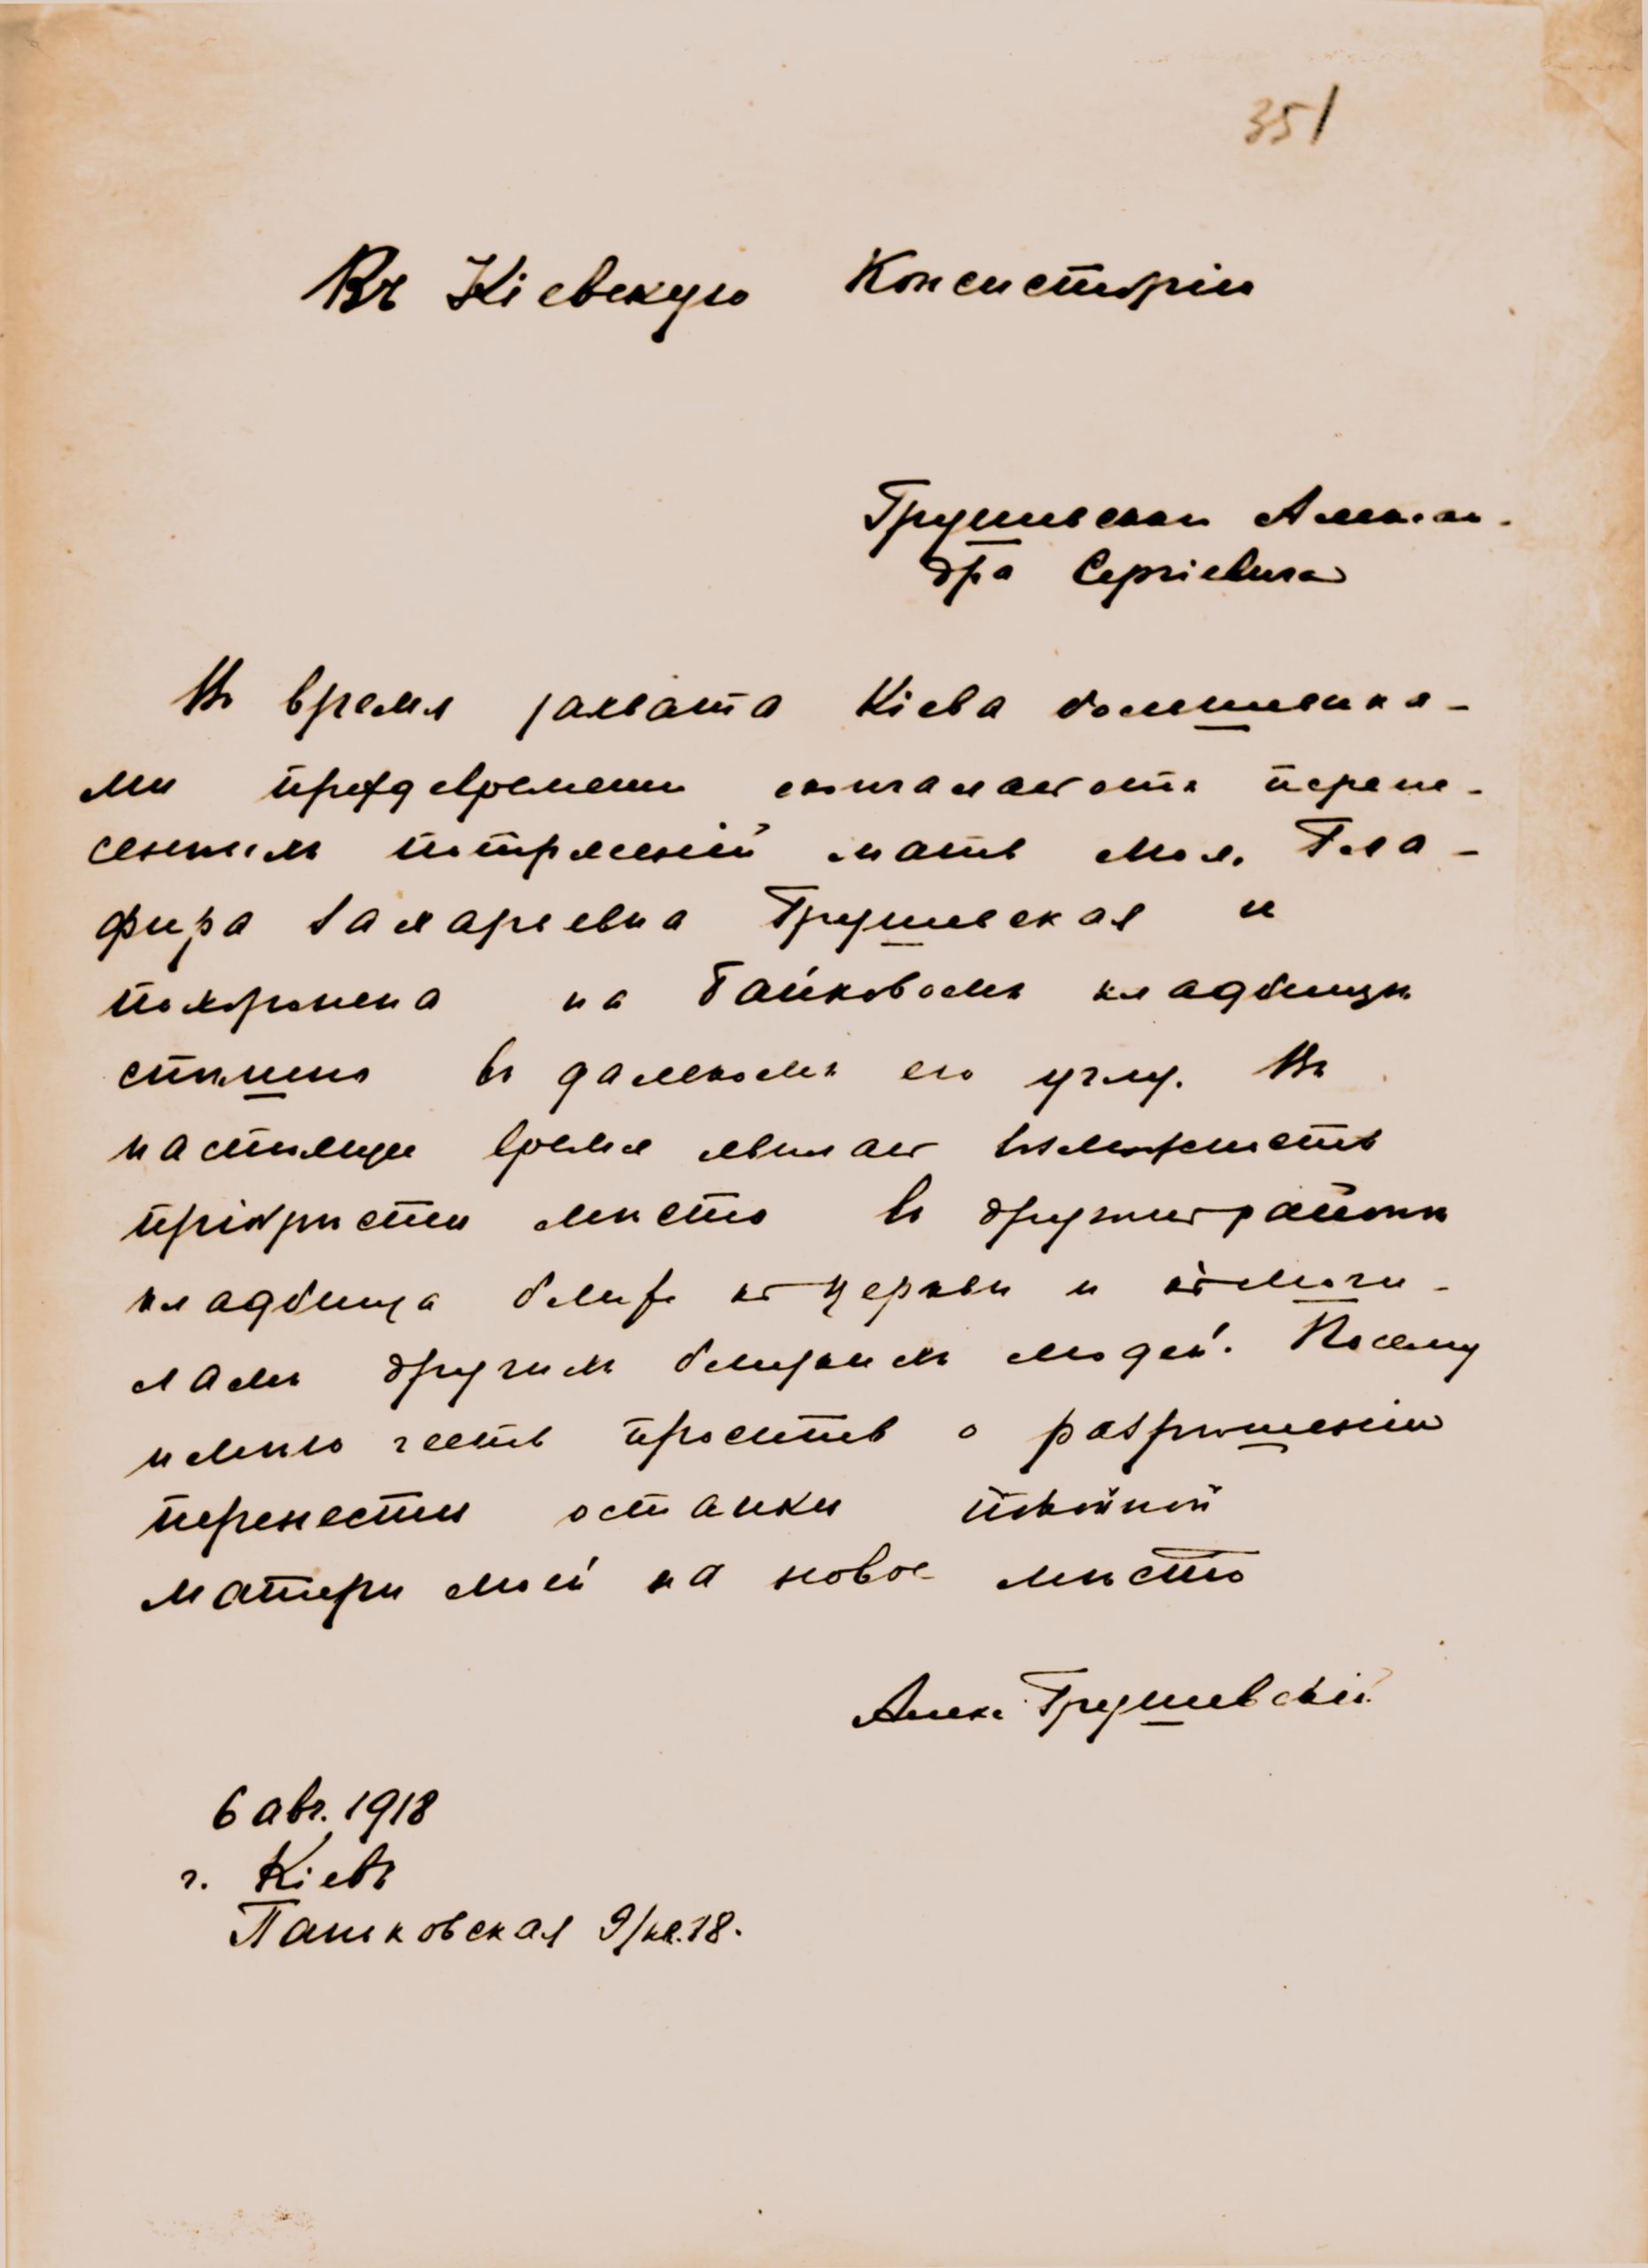 351
Въ Кіевскую Консисторію
Грушевскаго Алексан-
дра Сергіевича
Въ время захвата Кіева большевика-
ми преждевременно скончалась отъ перене-
сенныхъ потрясеній мать моя, Гла-
фира Захарьевна Грушевская и
похоронена на Байковомъ кладбищѣ
спѣшно въ далекомъ его углу. Въ
настоящее время явилась возможность
пріобрѣсти мѣсто въ другомъ районѣ
кладбища ближе къ церкви и къ моги-
ламъ другихъ близкихъ людей. Посему
имѣю честь просить о разрѣшеніи
перенести останки покойной
матери моей на новое мѣсто
Алек. Грушевскій
6 авг. 1918
г. Кіевъ
Паньковская 9/кв. 18.